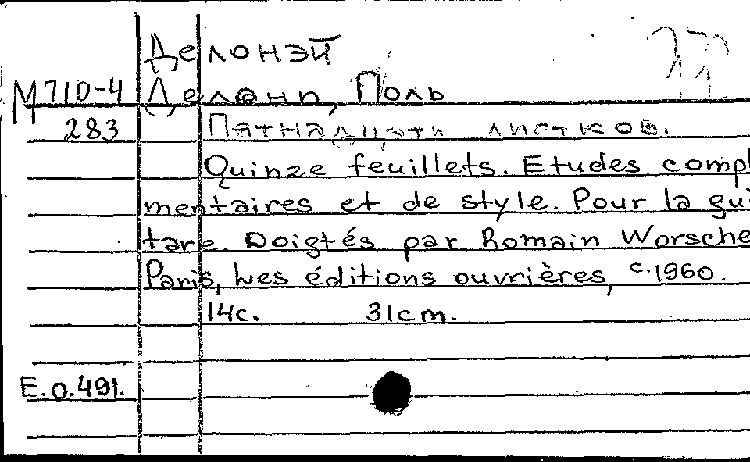 Делонэй
М710-4 Делони, Поль
283 Пятнадцать листков.
Quinze feuillets. Etudes compl
mentaires et de style. Pour la gui
tare. Doigtés par Romain Worsche
Paris, Les éditions ouvrières, c.1960.
14с. 31cm.
E.0.491.